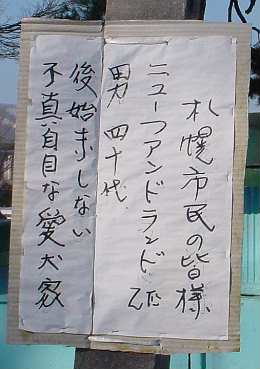 札幌市民の皆様
ニューファンドランド
男 四十代
後始末しない
不真自目な愛犬家